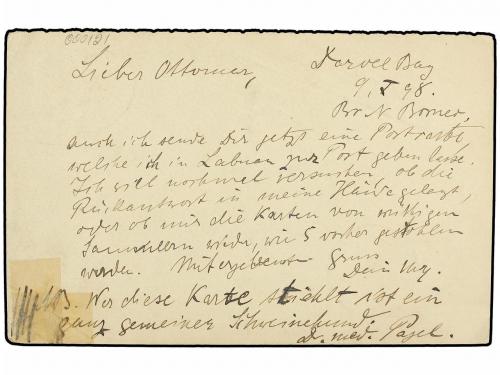 000121
Lieber Ottomar,
Darvel Bay
9/I 98.
Br. N Borneo,
auch ich sende Dir jetzt eine
welche ich in Labuan zur Post geben lasse.
Ich will nochmal versuchen, ob die
Rückantwort in meine Hände gelangt,
oder ob mir die Karten von wüthigen
Sammlern wieder, wie 5 vorher gestohlen
werden. Gruss
Dein
B. Wer diese Karte stiehlt ist ein
ganz gemeiner Schweinehund.
Dr. med. Pagel.